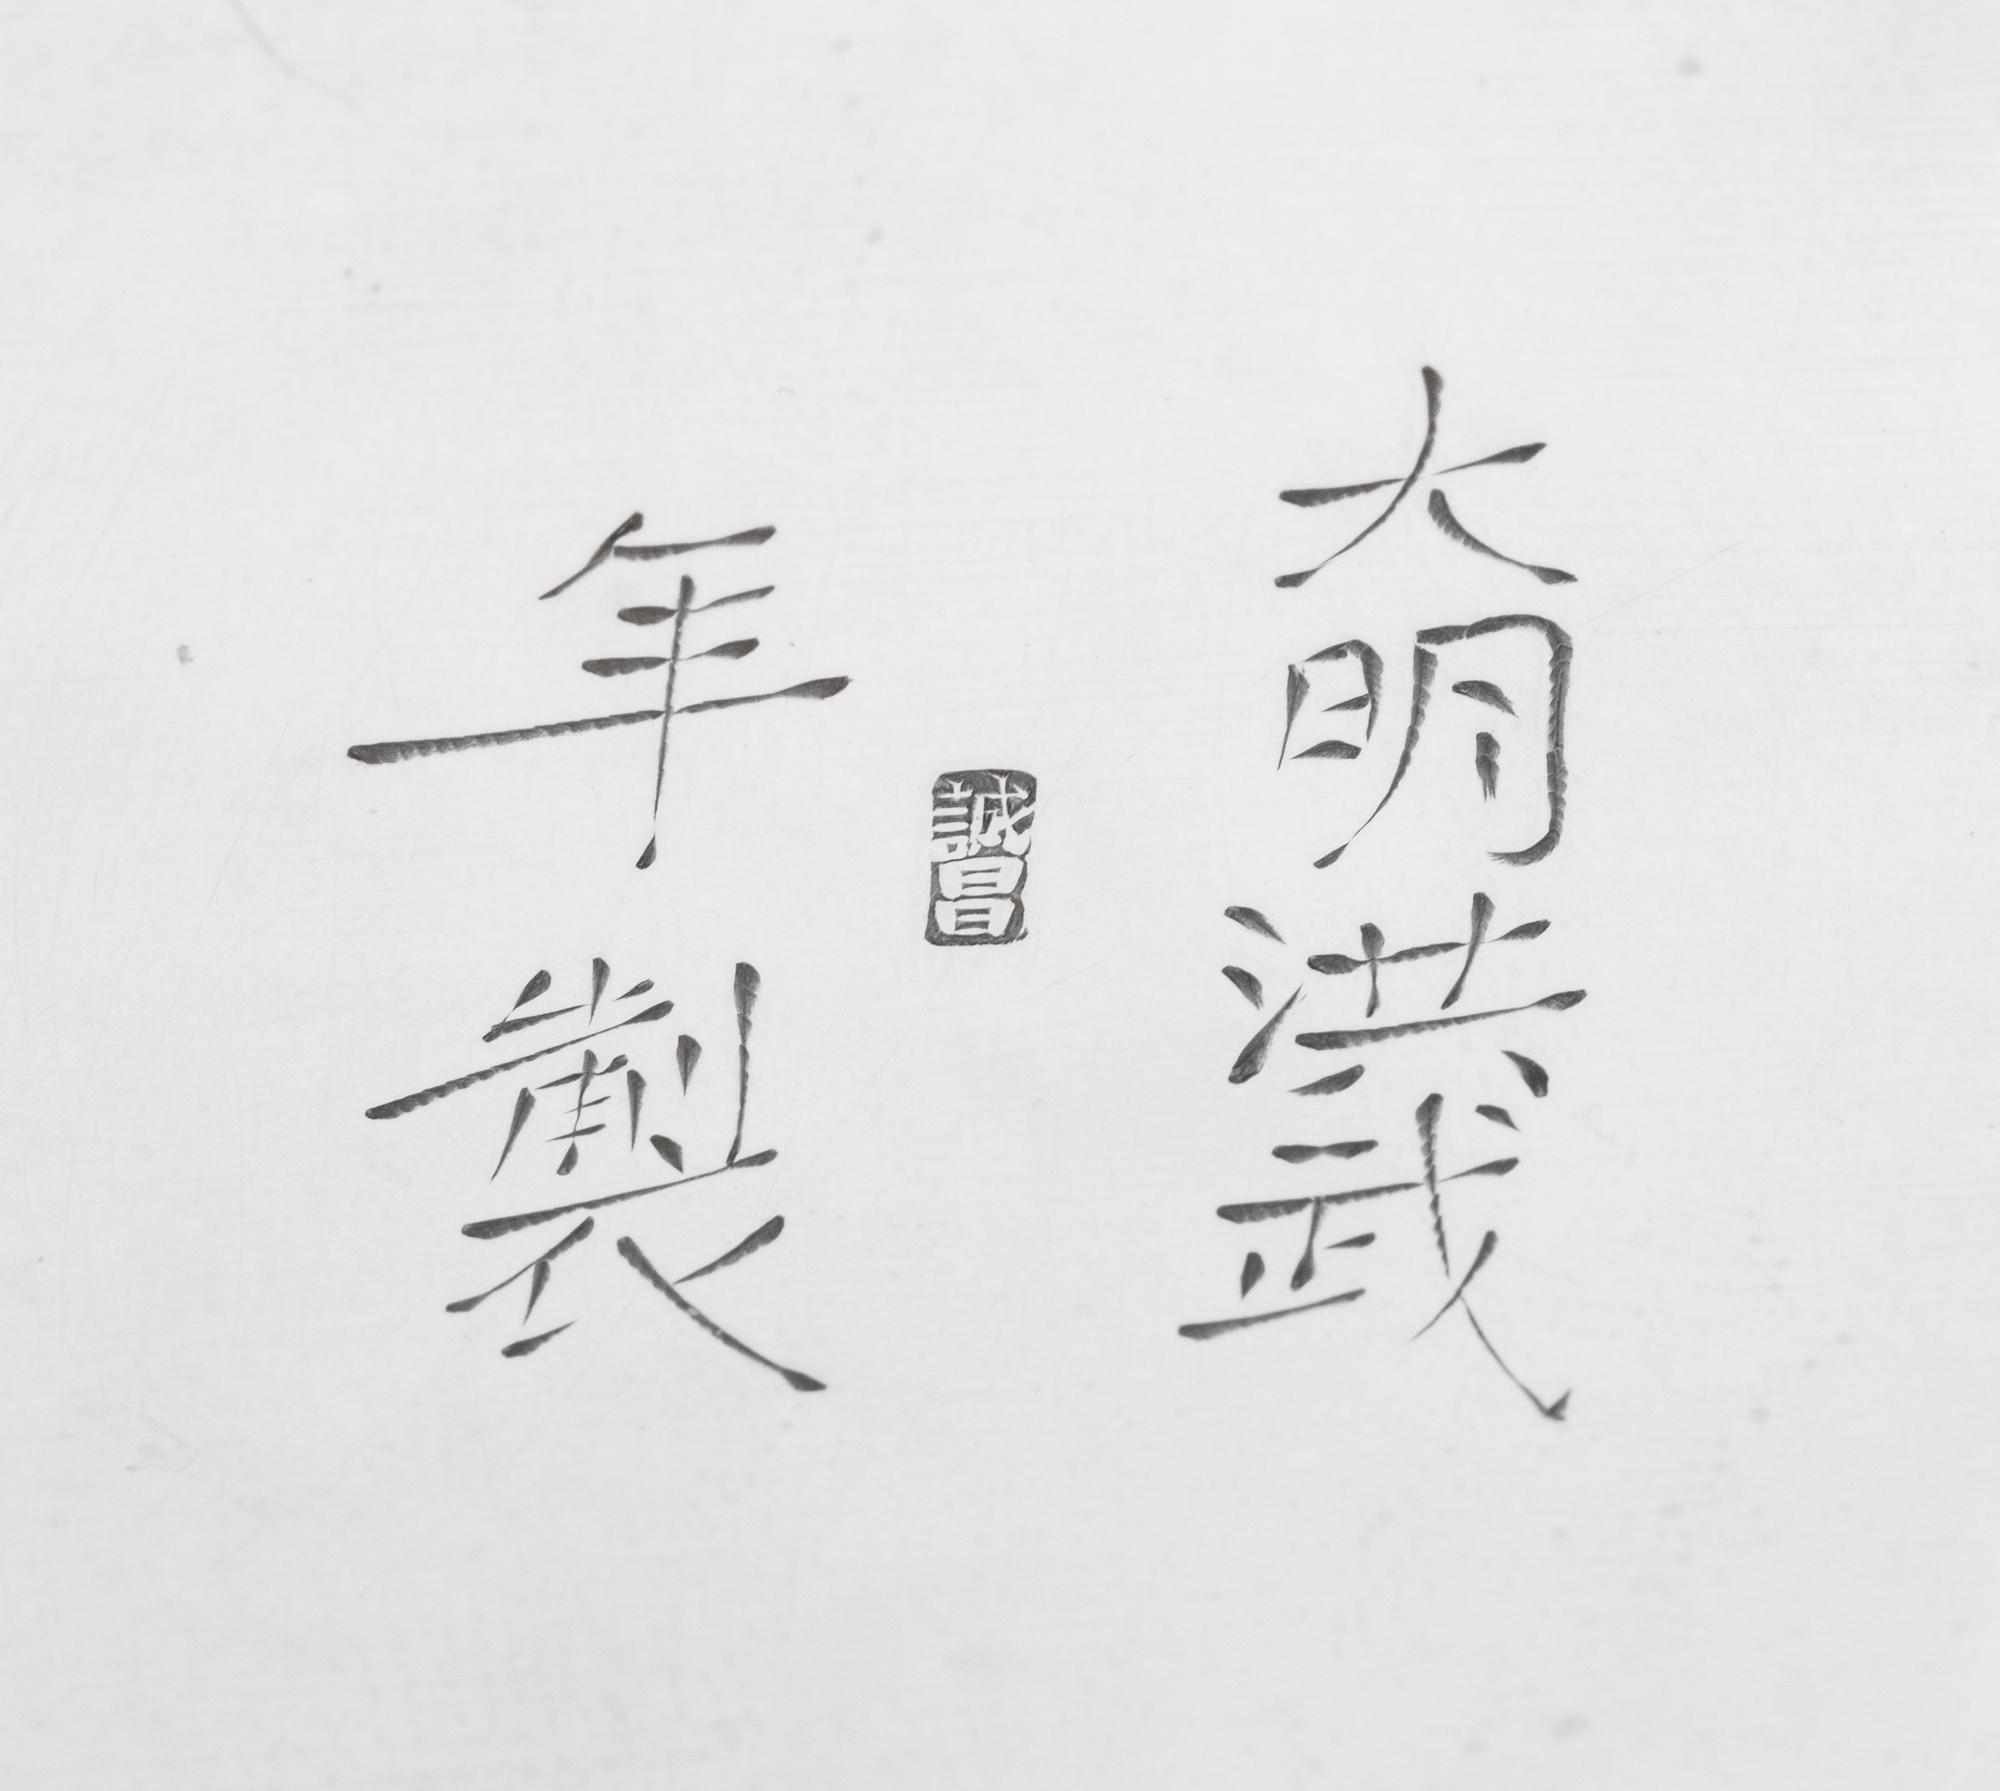 大明洪武
年製
誠昌